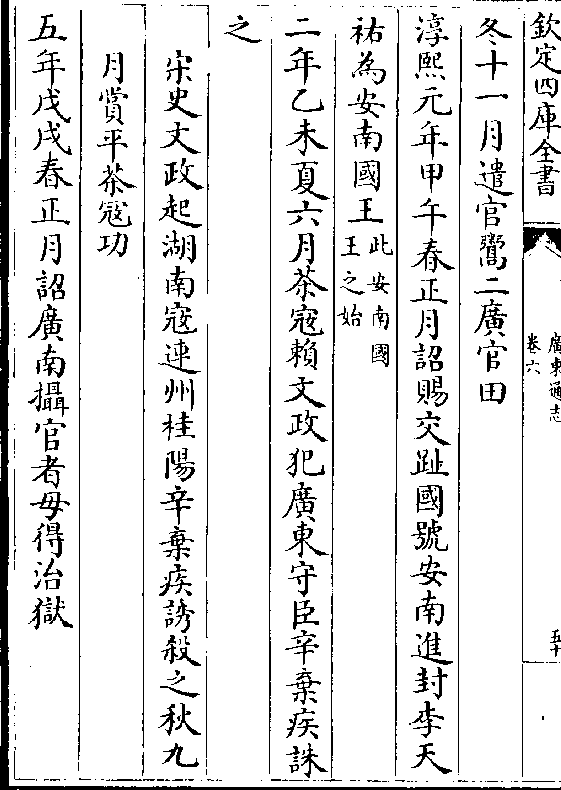 欽定四庫全書
廣東通志
卷六
五十
冬十一月遣官鬻二廣官田
淳熙元年甲午春正月詔賜交趾國號安南進封李天
祐為安南國王此安南國
王之始
二年乙未夏六月茶寇賴文政犯廣東守臣辛棄疾誅
之
宋史文政起湖南寇連州桂陽辛棄疾誘殺之秋九
月賞平茶寇功
五年戊戌春正月詔廣南攝官者毋得治獄